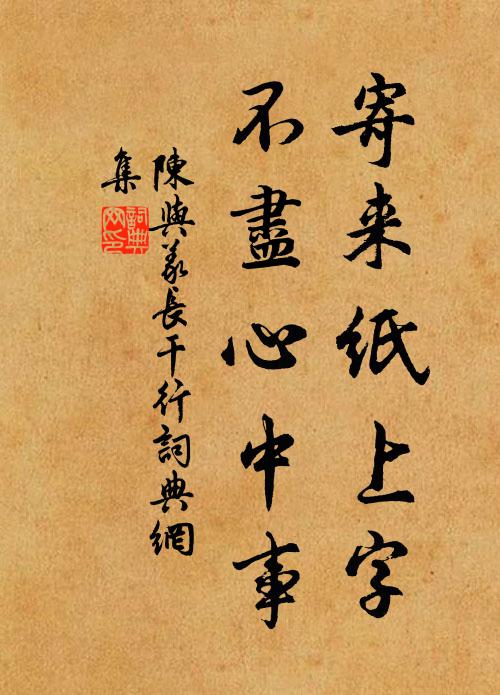 寄来紙上字
不盡心中事
陳與義長干行詞典網
集
詞典
网印